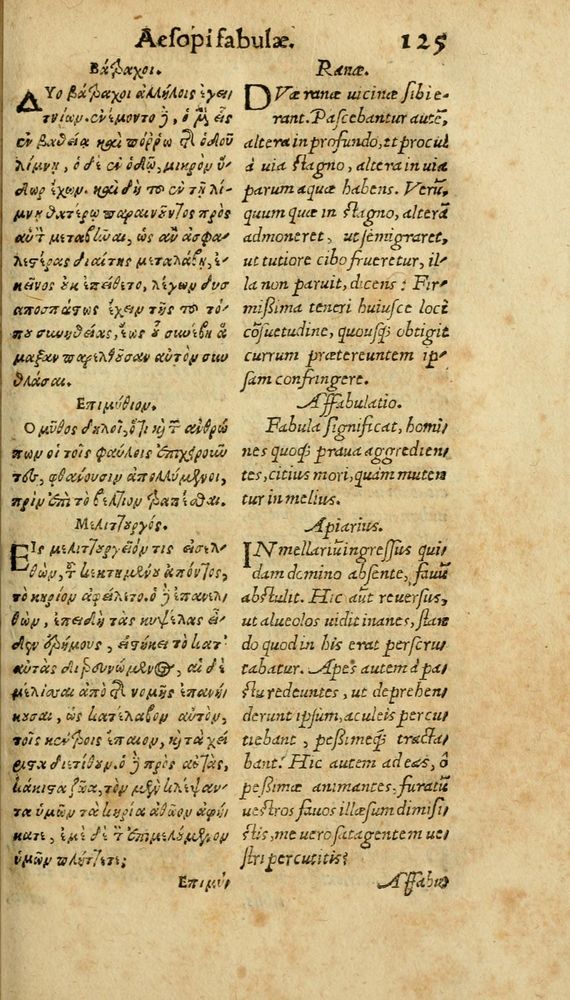 Aesopi fabulæ. 125
Βάτραχοι.
Δύο βάτραχοι ἀλλήλοις ἐγει/
τνίων. ἐνέμοντο ἢ, ὁ μὲν εἷς
ἐν βαθεία καὶ πόῤῥω τῆς ὁδοῦ
λίμνη, ὁ δὲ ἐν ὁδῷ, μικρὸν ὕ/
δωρ ἔχων. καὶ δὴ τοῦ ἐν τῇ λί/
μνῃ θατέρῳ παραινοῦντος πρὸς
αὐτὸν μεταβῆναι, ὡς ἂν ἀσφα/
λεστέρας διαίτης μεταλάβῃ, ἐ/
κεῖνος οὐκ ἐπείθετο, λέγων δυσ
αποσπάστως ἔχειν τῆς τοῦ τό/
που συνηθείας, ἕως οὗ συνέβη ἅ
μαξαν παρελθοῦσαν αὐτὸν συν
θλάσαι.
Επιμύθιον.
Ο μῦθος δηλοῖ, ὅτι καὶ τῶν ἀνθρώ
πων οἱ τοῖς φαύλοις ἐπιχειροῦν
τες, φθάνουσιν ἀπολλύμενοι,
πρὶν ἐπὶ τὸ βέλτιον τραπέσθαι.
Μελιττουργός.
Εἰς μελιττουργεῖόν τις εἰσελ/
θὼν, τοῦ κεκτημένου ἀπόντος,
τὸ κηρίον ἀφείλετο. ὁ ἢ ἐπανελ/
θὼν, ἐπειδὴ τὰς κυψέλας εἶ
δεν ἐρήμους, εἱστήκει τὸ κατ᾽
αὐτὰς διερευνώμενος, αἱ δὲ
μέλισσαι ἀπὸ τῆς νομῆς ἐπανή/
κουσαι, ὡς κατέλαβον αὐτὸν,
τοῖς κέντροις ἔπαιον, καὶ τὰ χεί
ριστα διετίθουν. ὁ ἢ πρὸς αὐτὰς,
ὦ κάκιστα ζῶα, τὸν μὲν κλέψαν/
τα ὑμῶν τὰ κηρία ἀθῶον ἀφή/
κατε, ἐμὲ δὲ τὸν ἐπιμελούμενον
ὑμῶν πλήττετε;
Επιμύ/
Ranæ.
DVæ ranæ uicinæ sibi e/
rant. Pascebantur autē,
altera in profundo, et procul
à uia stagno, altera in uia
parum aquæ habens. Verū,
quum quæ in stagno, alterā
admoneret, ut semigraret,
ut tutiore cibo frueretur, il/
la non paruit, dicens: Fir/
mißima teneri huiusce loci
cōsuetudine, quousq; obtigit
currum prætereuntem ip/
sam confringere.
Affabulatio.
Fabula significat, homi/
nes quoq; praua aggredien/
tes, citius mori, quàm muten
tur in melius.
Apiarius.
IN mellariū ingressus qui/
dam domino absente, fauū
abstulit. Hic aūt reuersus,
ut alueolos uidit inanes, stan
do quod in his erat perscru
tabatur. Apes autem à pa/
stu redeuntes, ut deprehen/
derunt ipsum, aculeis percu
tiebant, peßimeq; tracta/
bant. Hic autem ad eas, ô
peßimæ animantes, furatū
uestros fauos illæsum dimisi/
stis, me uero satagentem ue/
stri percutitis?
Affabu/